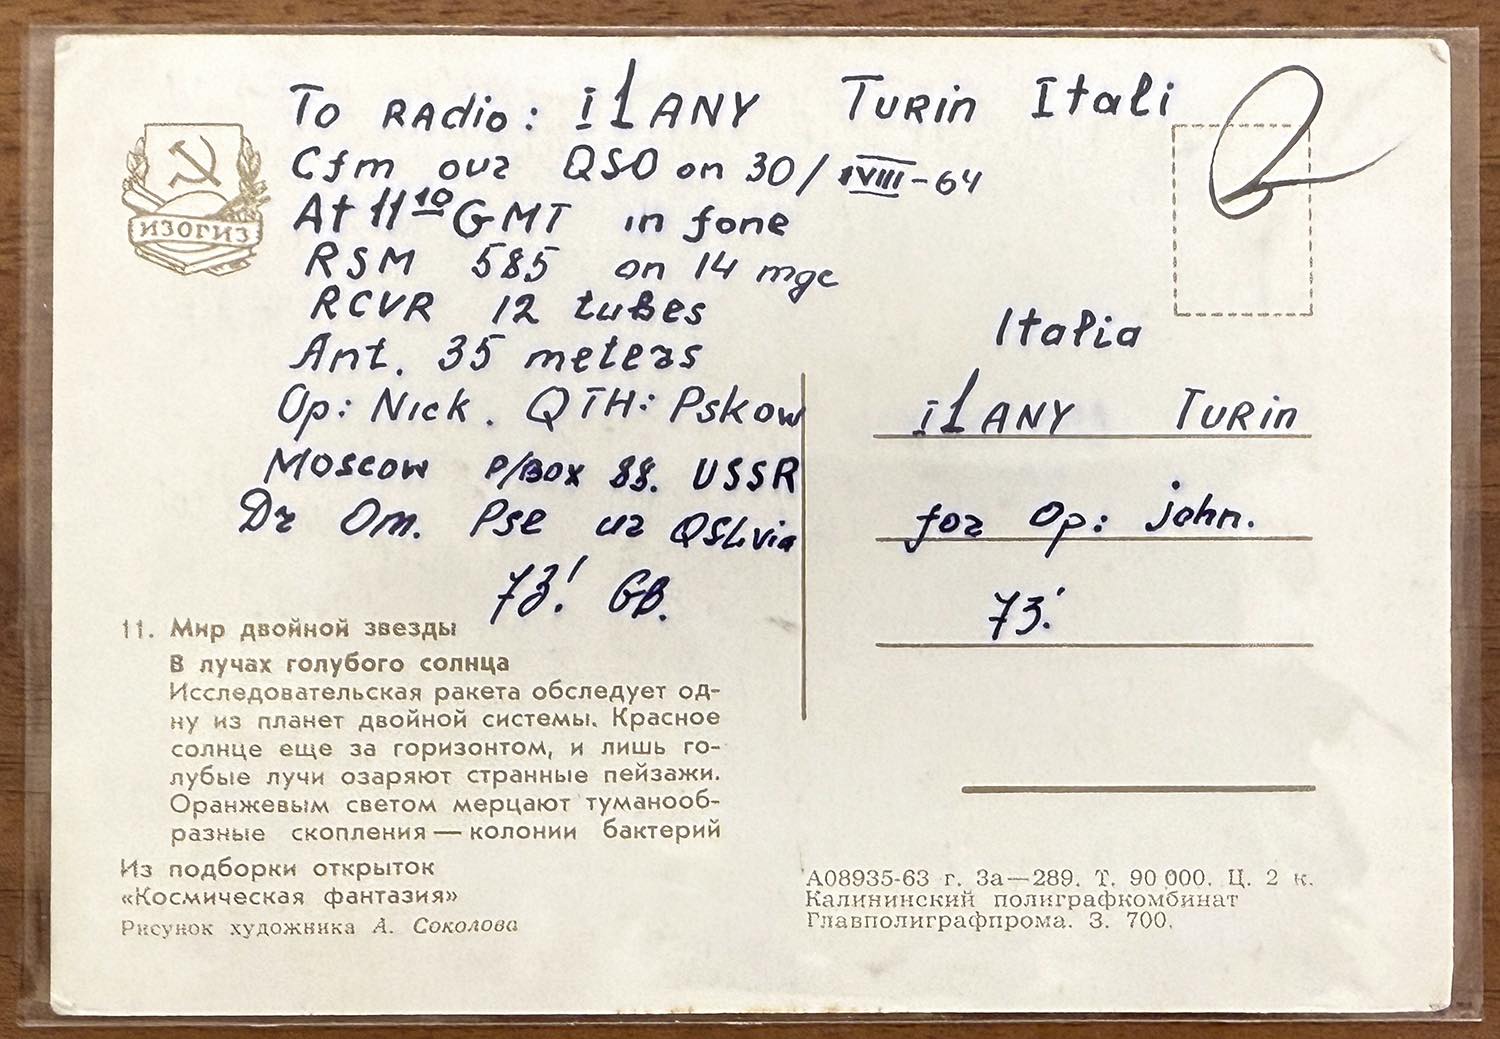 To RAdio: I1ANY Turin Itali
Cfm our QSO on 30/VIII-64
At 11 10 GMT in fone
RSM 585 on 14 mgc
RCVR 12 tubes
Ant. 35 meters
Op: Nick. QTH: Pskow
Moscow P/Box 88. USSR
Dr Om. Pse ur QSL via
73! GB.
ИЗОГИЗ
11. Мир двойной звезды
В лучах голубого солнца
Исследовательская ракета обследует од-
ну из планет двойной системы. Красное
солнце еще за горизонтом, и лишь го-
лубые лучи озаряют странные пейзажи.
Оранжевым светом мерцают туманооб-
разные скопления — колонии бактерий
Из подборки открыток
«Космическая фантазия»
Рисунок художника А. Соколова
Italia
I1ANY Turin
for Op: john.
73!
А08935-63 г. За—289. Т. 90 000. Ц. 2 к.
Калининский полиграфкомбинат
Главполиграфпрома. З. 700.